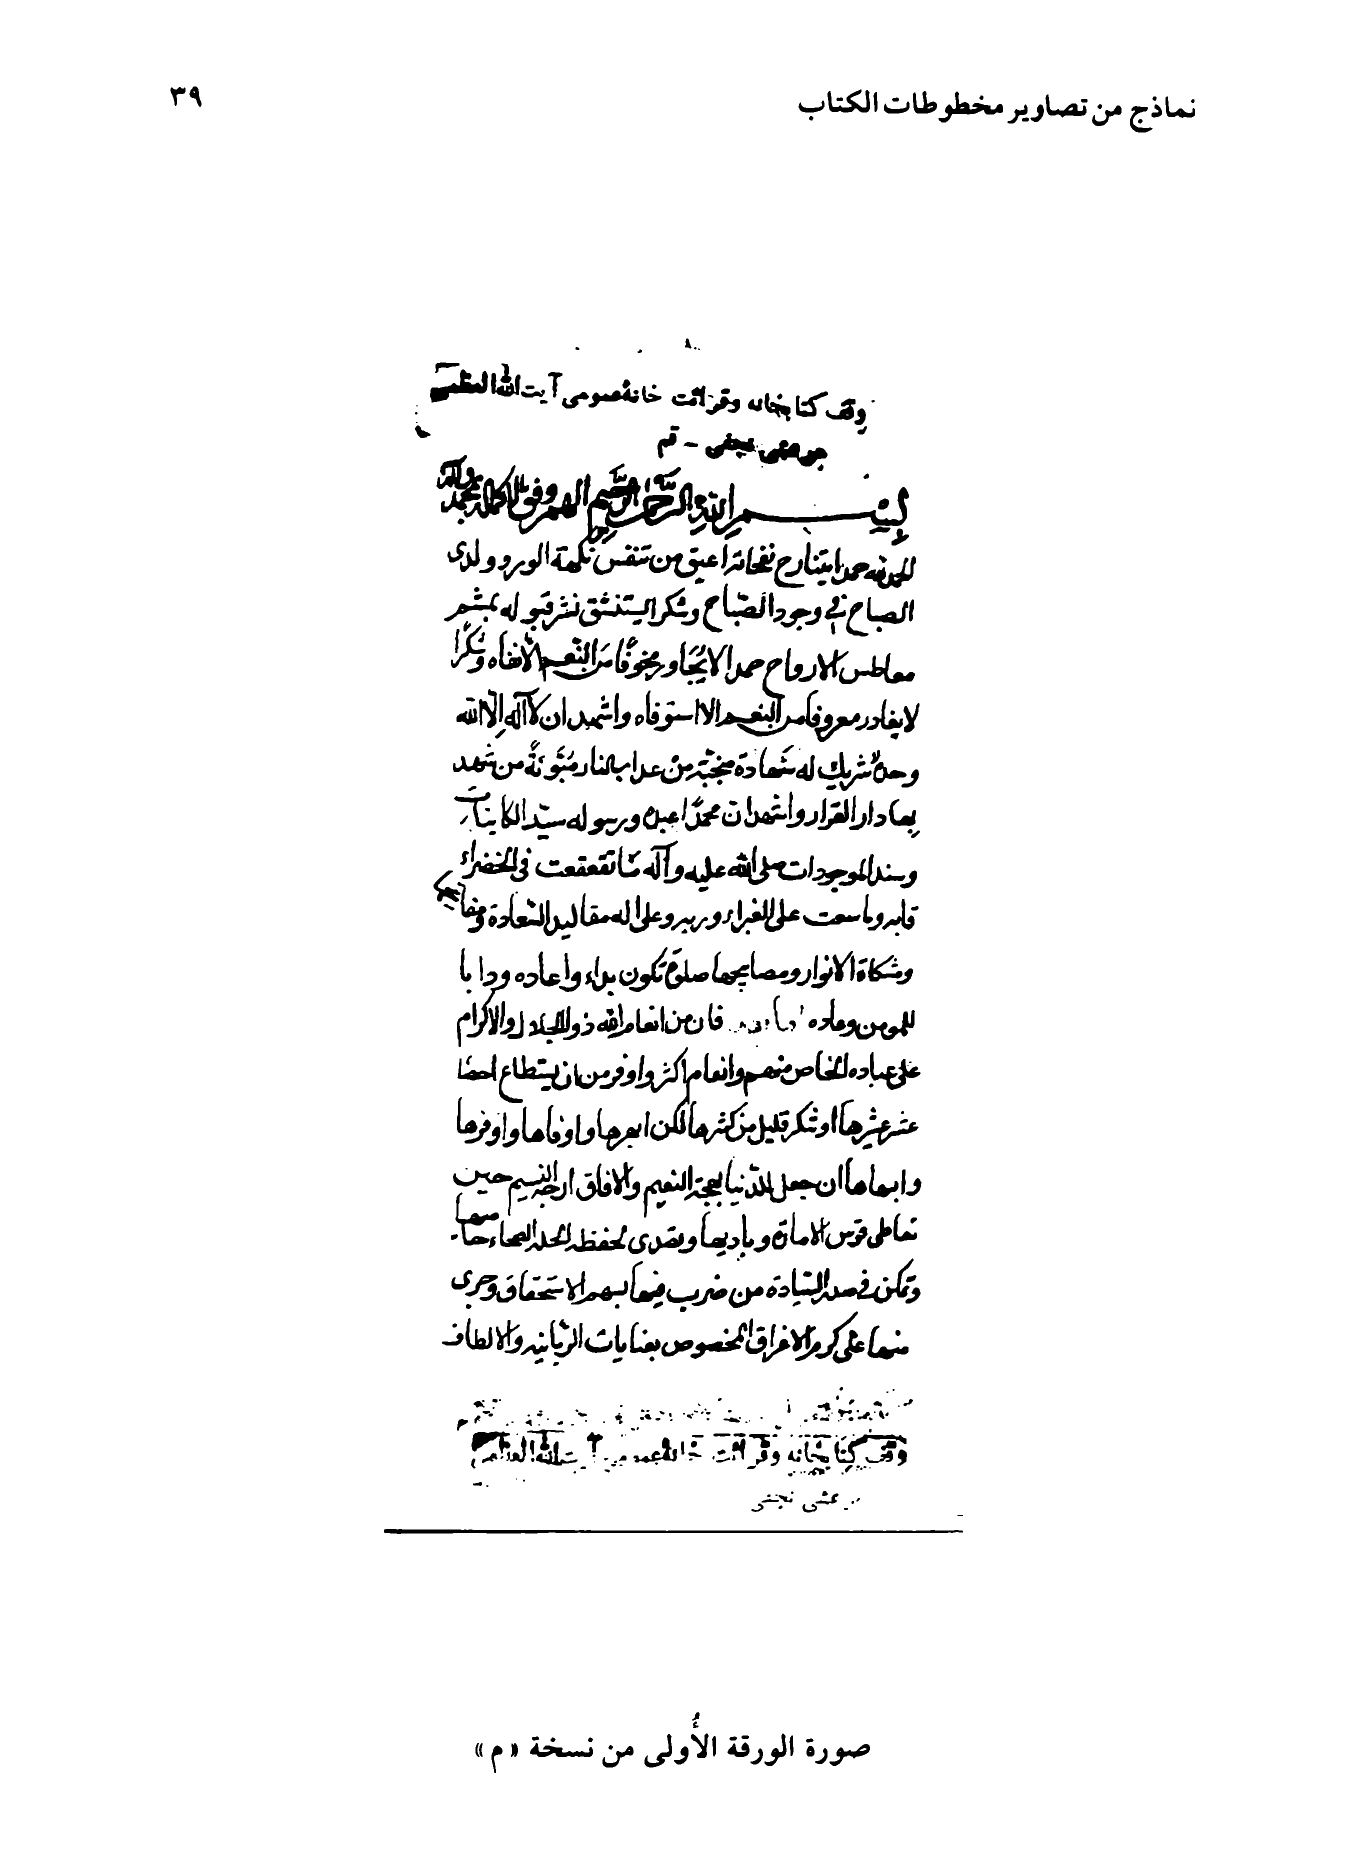 نماذج من تصاوير مخطوطات الكتاب
٣٩
وقف كتابخانه وقرائت خانهٔ عمومى آيت الله العظمى
مرعشى نجفى - قم
بسم الله الرحمن الرحيم اللهم وفق لاكماله بمحمد وآله
الحمد لله حمدا يتأرح نفحاته اعبق من تنفس نكهة الورد ولدى
الصباح في وجود الصباح وشكرا يستنشق نشر قبوله بمشم
معاطس الارواح حمدا لا يجاور مخوفا من النقم الا نفاه وشكرا
لا يغادر معروفا من النعم الا استوفاه واشهد ان لا آله إلا الله
وحده لا شريك له شهادة منجية من عذاب النار مبوئة من شهد
بها دار القرار واشهد ان محمدا عبده ورسوله سيد الكاينات
وسند الموجودات صلى الله عليه وآله ما تقعقعت في الخضراء
وما سعت على الغبراء وعلى اله مقاليد السعادة
ومشكاة الانوار ومصابيحها صلوة تكون بداء واعاده ودابا
للمومن وعاده فان من انعام الله ذو الجلال والاكرام
على عباده الخاص منهم وانعام اكثر واوفر من ان يستطاع احصا
عشر عشرها او شكر قليل من كثرها لكن ابهرها واوفاها واوفرها
وابهاها ان جعل للدنيا بهجة النعيم وللافاق ارجة النسيم حين
تعاطى قوس الامارة باريها
وتمكن في صدر السيادة من ضرب فيها بسهم الاستحقاق وجرى
منها على كرم الاعراق المخصوص بعنايات الربانيه والالطاف
وقف كتابخانه وقرائت خانه عمومى آيت الله العظمى
مرعشى نجفى
صورة الورقة الأُولى من نسخة «م»